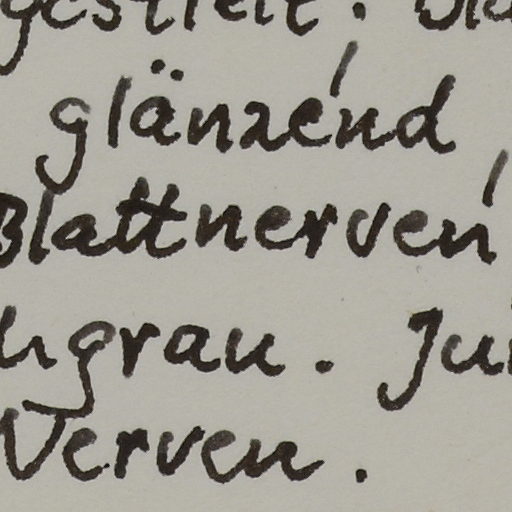 gestielt.
glänzend,
Blattnerven
grau. Ju
Nerven.